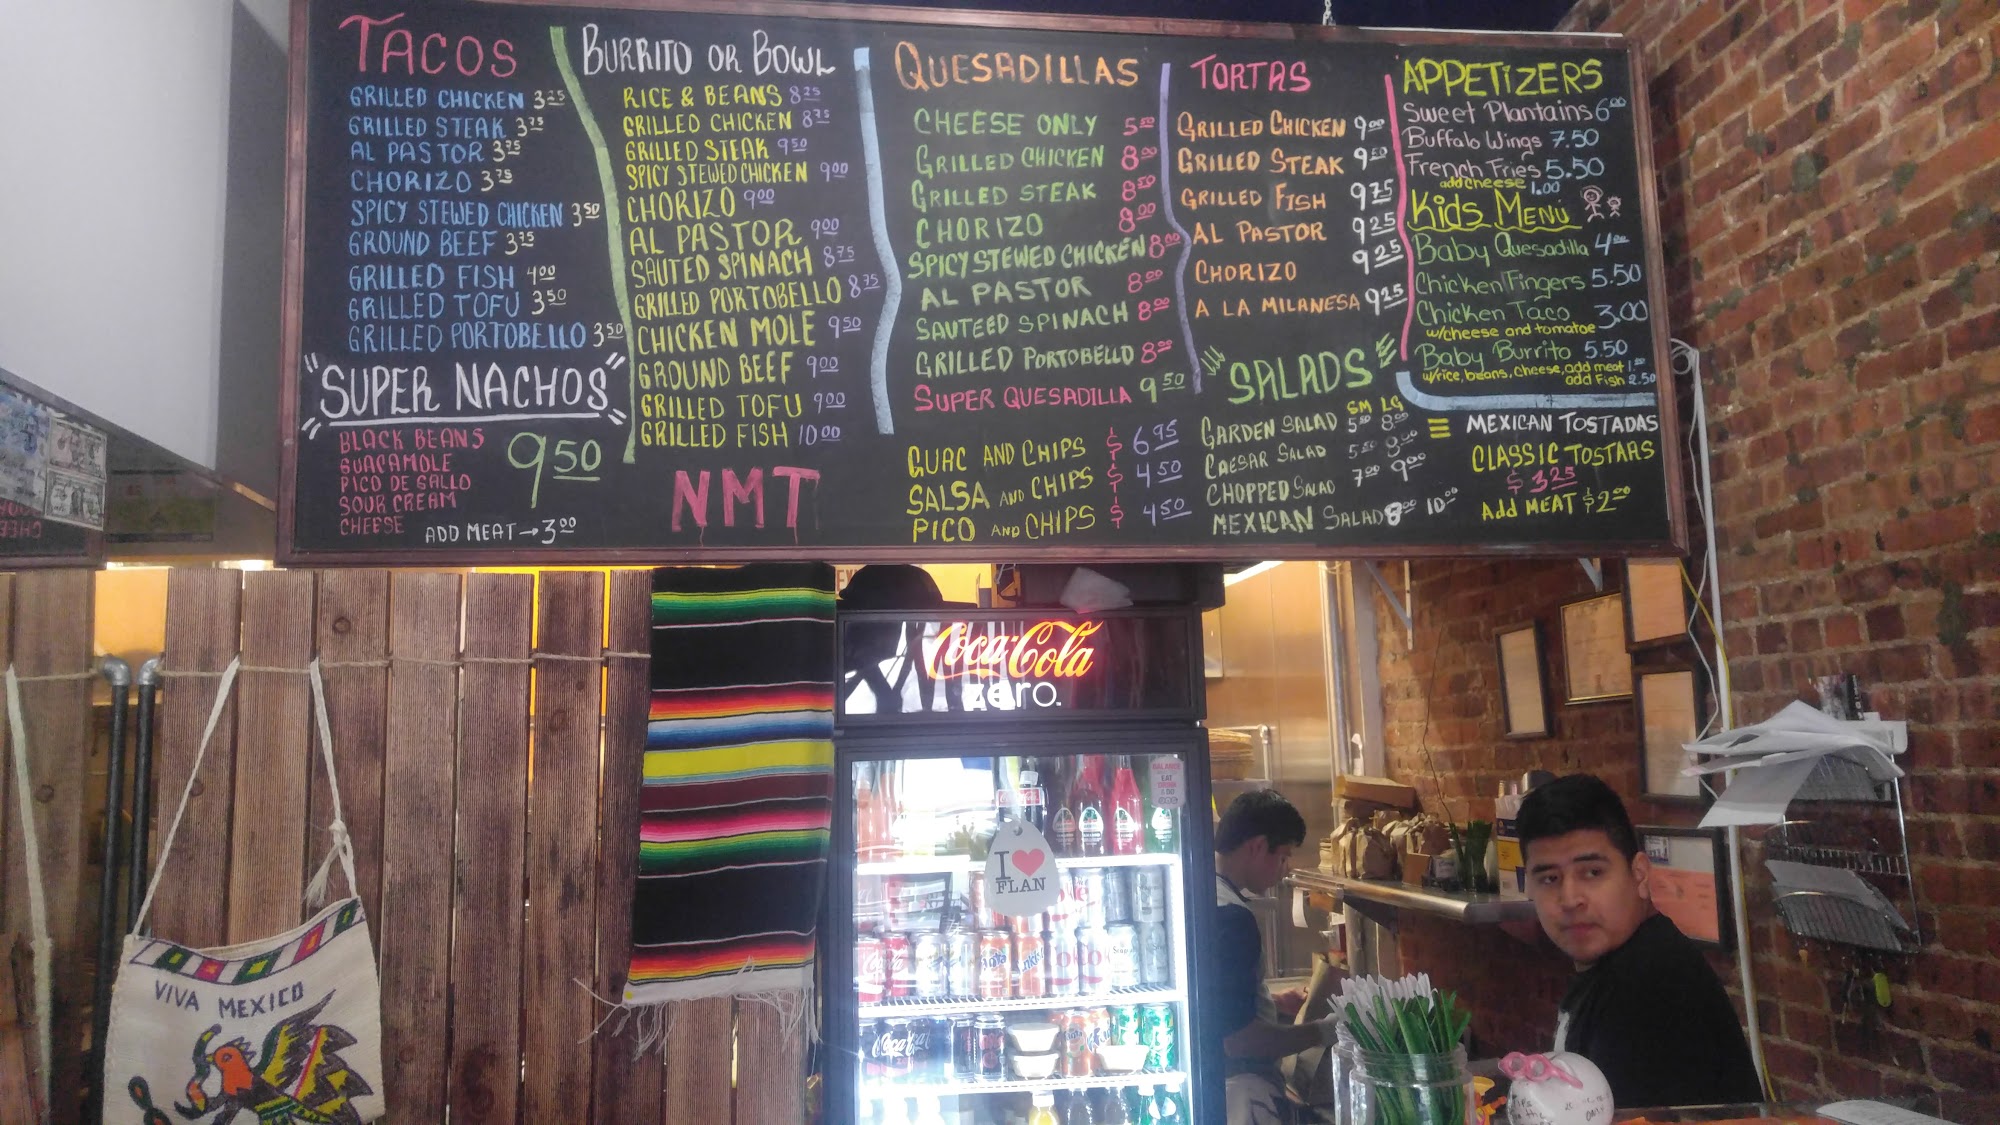 TACOS
GRILLED CHICKEN 3.25
GRILLED STEAK 3.75
AL PASTOR 3.75
CHORIZO 3.75
SPICY STEWED CHICKEN 3.50
GROUND BEEF 3.75
GRILLED FISH 4.00
GRILLED TOFU 3.50
GRILLED PORTOBELLO 3.50
"SUPER NACHOS"
BLACK BEANS
GUACAMOLE
PICO DE GALLO
SOUR CREAM
CHEESE
9.50
ADD MEAT → 3.00
BURRITO OR BOWL
RICE & BEANS 8.25
GRILLED CHICKEN 8.75
GRILLED STEAK 9.50
SPICY STEWED CHICKEN 9.00
CHORIZO 9.00
AL PASTOR 9.00
SAUTED SPINACH 8.75
GRILLED PORTOBELLO 8.75
CHICKEN MOLE 9.50
GROUND BEEF 9.00
GRILLED TOFU 9.00
GRILLED FISH 10.00
NMT
QUESADILLAS
CHEESE ONLY 5.50
GRILLED CHICKEN 8.00
GRILLED STEAK 8.50
CHORIZO 8.00
SPICY STEWED CHICKEN 8.00
AL PASTOR 8.00
SAUTEED SPINACH 8.00
GRILLED PORTOBELLO 8.00
SUPER QUESADILLA 9.50
GUAC AND CHIPS $ 6.95
SALSA AND CHIPS $ 4.50
PICO AND CHIPS $ 4.50
TORTAS
GRILLED CHICKEN 9.00
GRILLED STEAK 9.50
GRILLED FISH 9.75
AL PASTOR 9.25
CHORIZO 9.25
A LA MILANESA 9.25
SALADS
SM LG
GARDEN SALAD 5.50 8.00
CAESAR SALAD 5.50 8.00
CHOPPED SALAD 7.00 9.00
MEXICAN SALAD 8.00 10.00
APPETIZERS
Sweet Plantains 6.00
Buffalo Wings 7.50
French Fries 5.50
add cheese 1.00
Kids Menu
Baby Quesadilla 4.00
Chicken Fingers 5.50
Chicken Taco 3.00
w/cheese and tomatoe
Baby Burrito 5.50
w/rice, beans, cheese, add meat 1.00
add Fish 2.50
MEXICAN TOSTADAS
CLASSIC TOSTAAS
$ 3.25
Add MEAT $2.00
Coca-Cola
zero
I ♥
FLAN
VIVA MEXICO